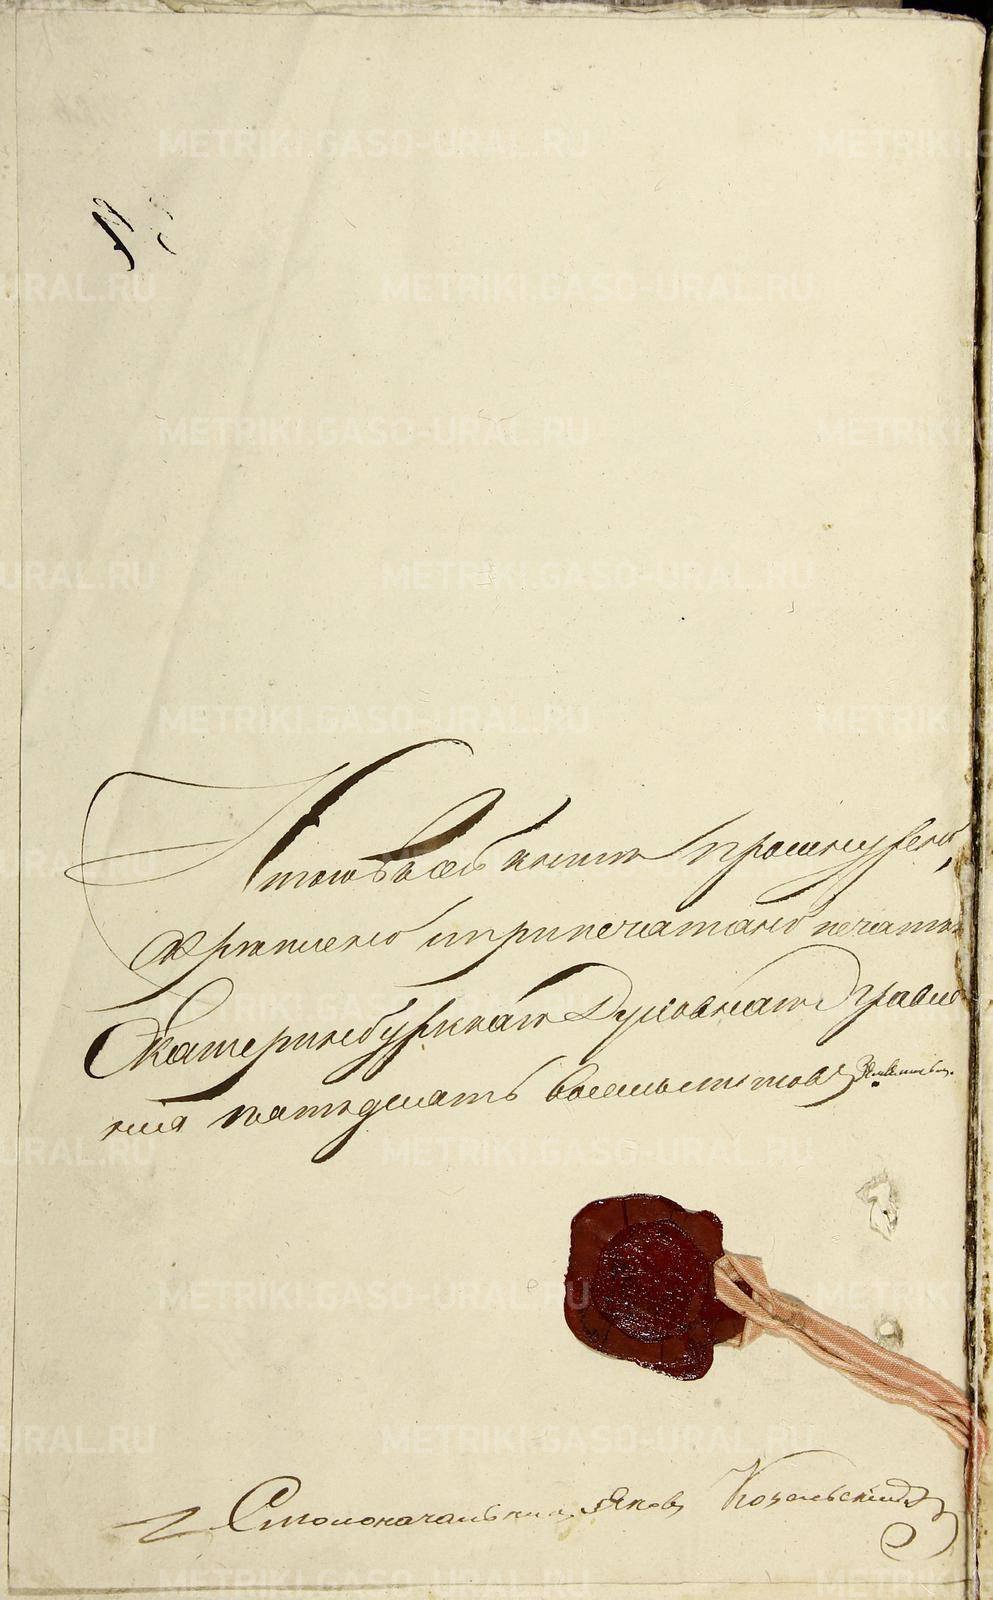 METRIKI.GASO-URAL.RU
Итого въ сей книгѣ прошнуровано,
скрѣплено и припечатано печатью
Екатеринбургскаго Духовнаго Правле
нія пятьдесятъ восемь листовъ
Столоначальникъ Яковъ Козельскій